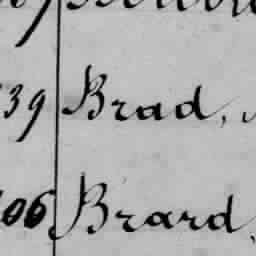 39 Brad,
06 Brard,